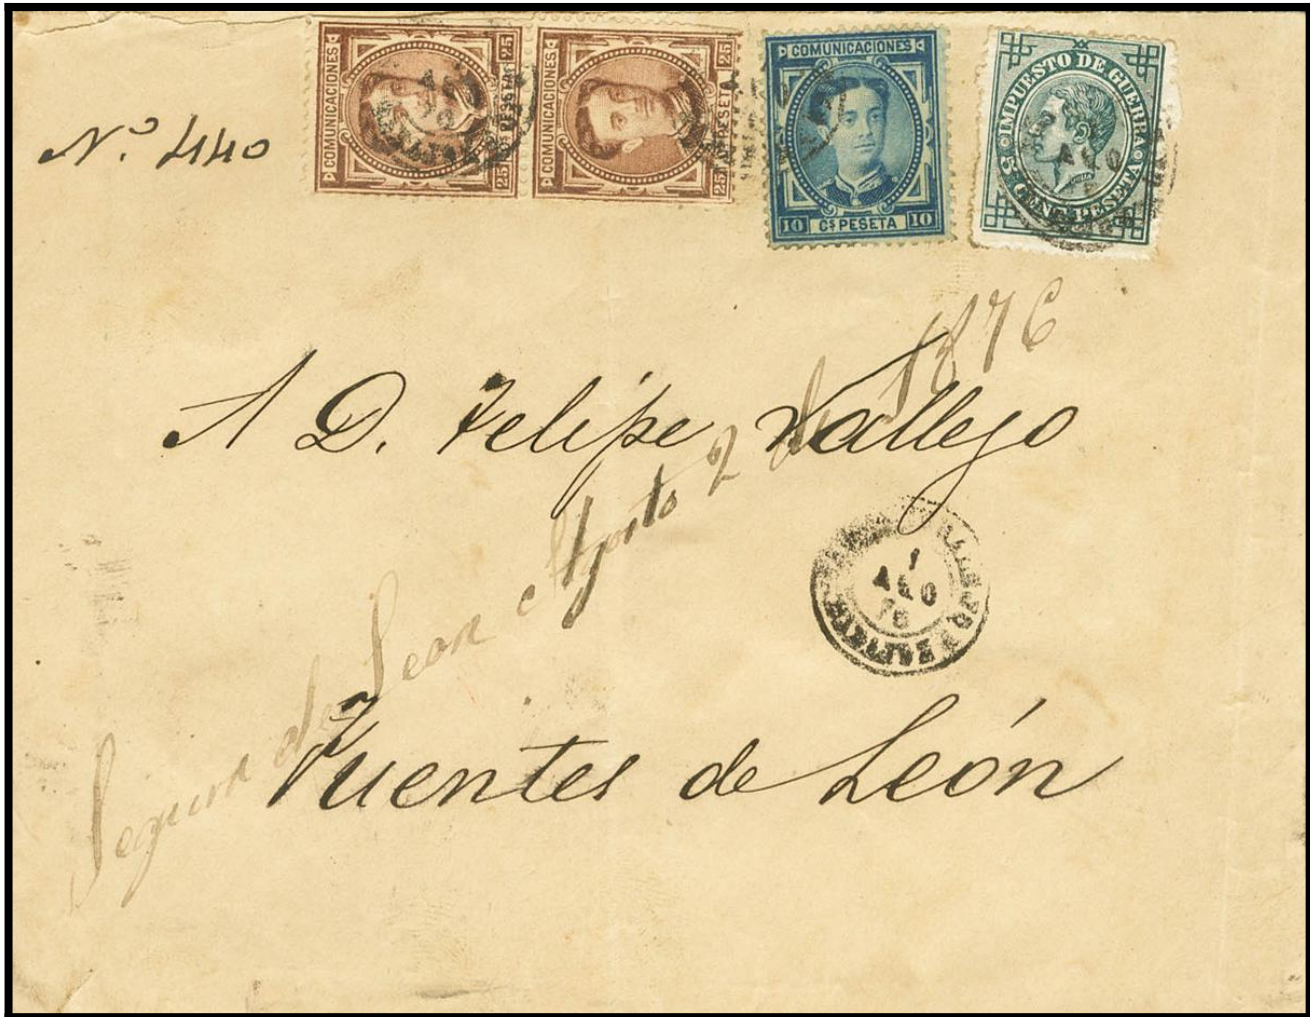 COMUNICACIONES
25 Cs PESETA 25
COMUNICACIONES
25 Cs PESETA 25
COMUNICACIONES
10 Cs PESETA 10
IMPUESTO DE GUERRA
5 CENTs PESETA
AGO
Nº 440
A D. Felipe Vallejo
1
AGO
76
Segura de Leon Agosto 2 de 1876
Fuentes de León